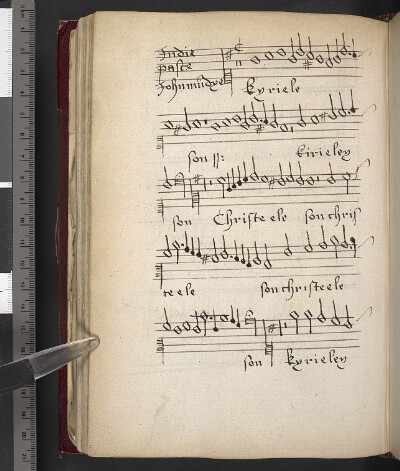 Indie
pasce
Johnmūdye
kyriele
son ij: kirieley
son Christe ele son chris
te ele son christe ele
son kyrieley